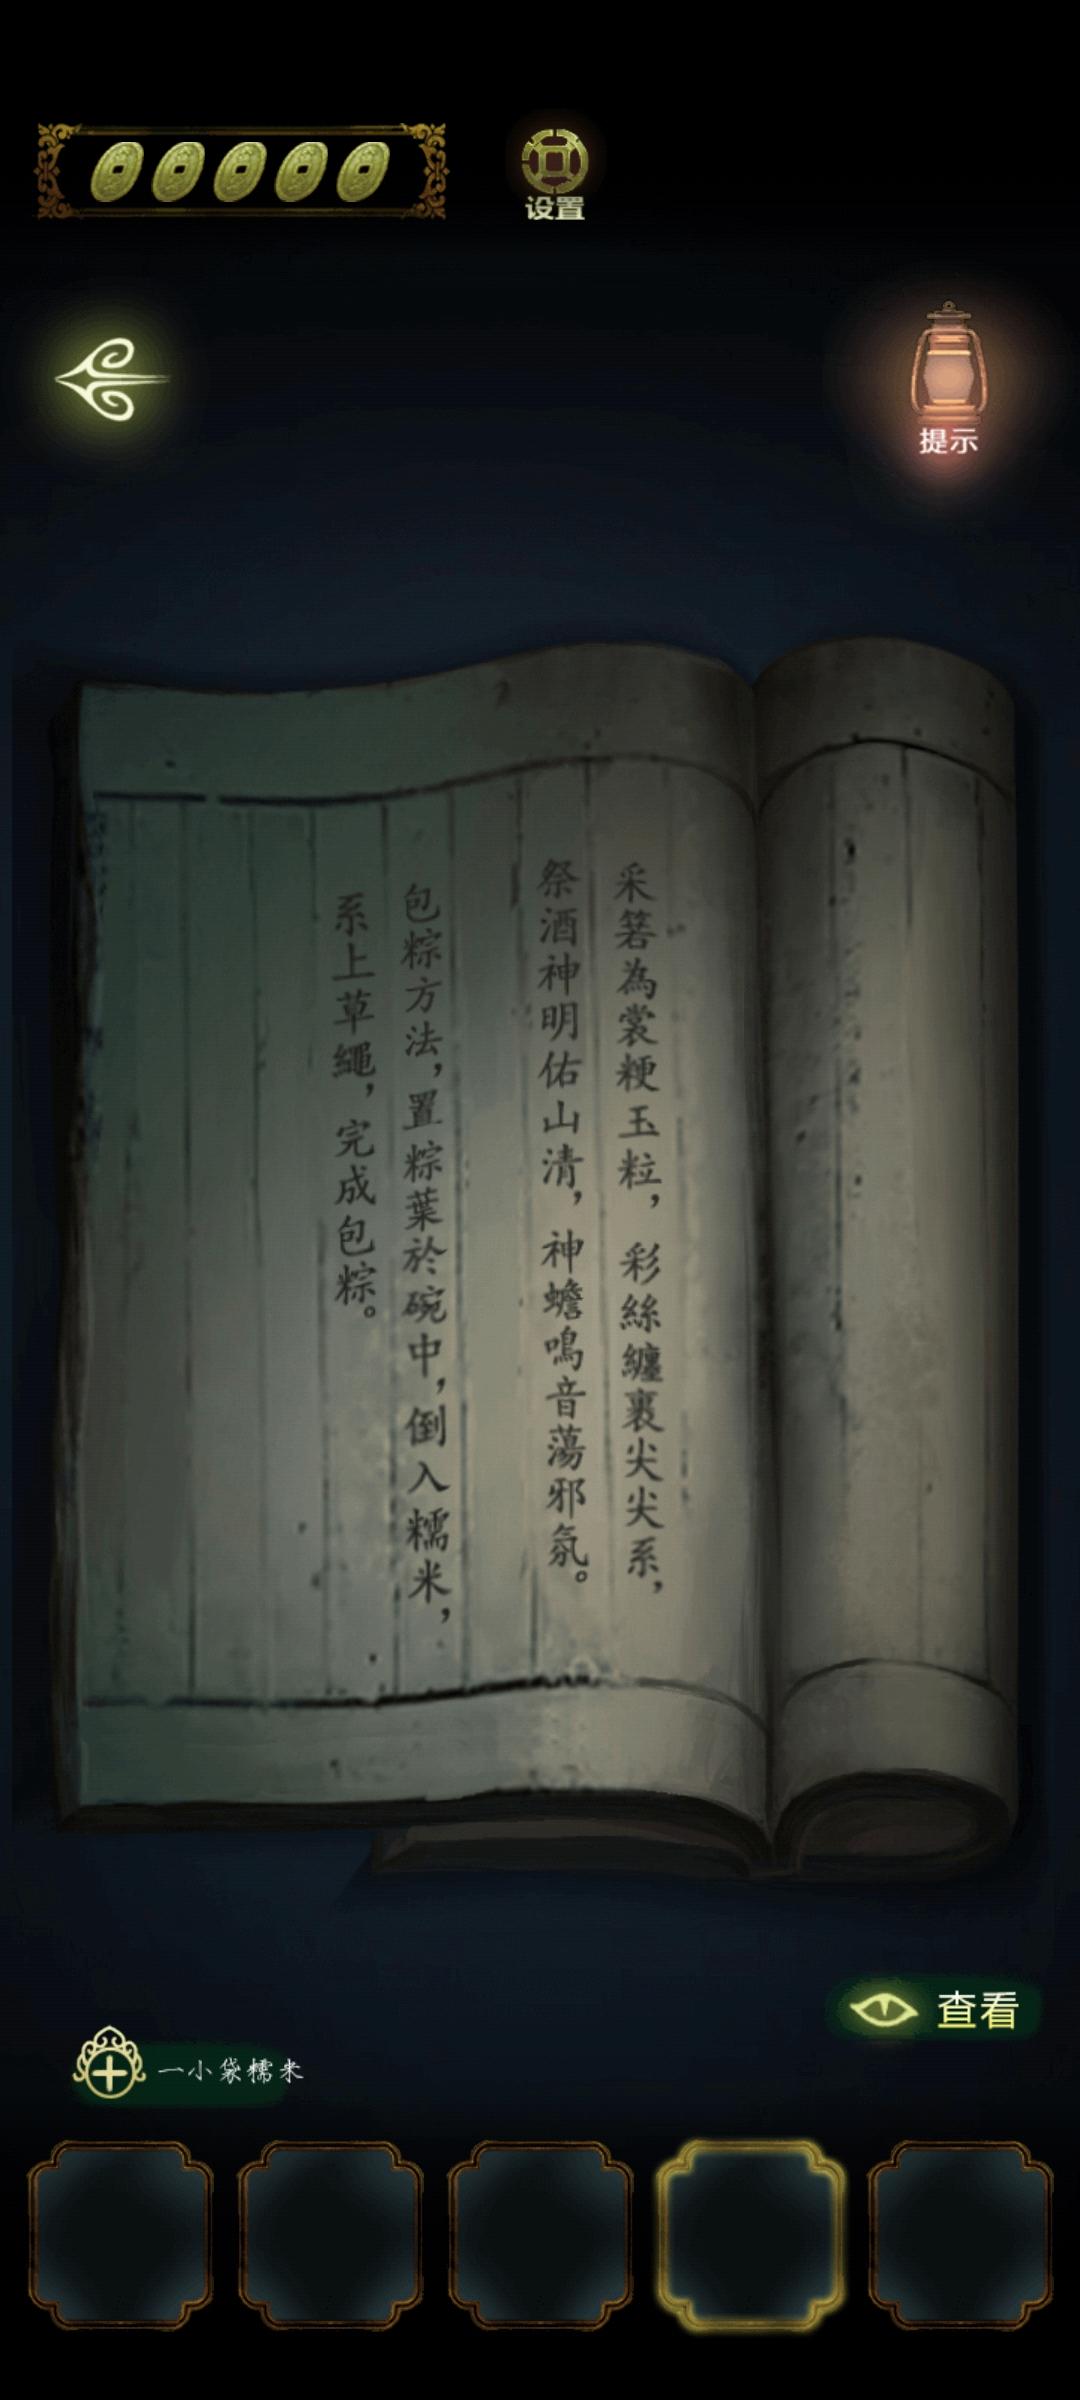 设置
提示
采箬為裳粳玉粒，彩絲纏裹尖尖系，
祭酒神明佑山清，神蟾鳴音蕩邪氛。
包粽方法，置粽葉於碗中，倒入糯米，
系上草繩，完成包粽。
查看
一小袋糯米